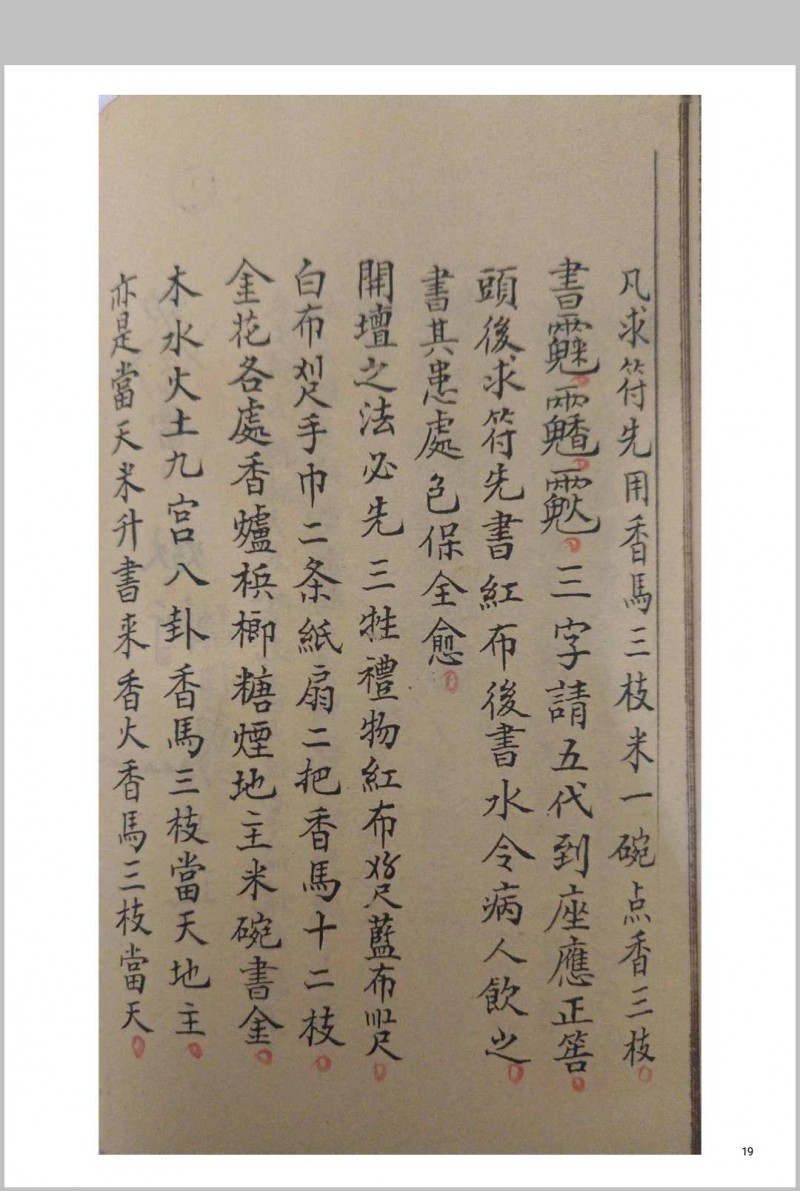 凡求符先用香馬三枝米一碗点香三枝
書 三字請五代到座應正筶
頭後求符先書紅布後書水令病人飲之
書其患處包保全愈
開壇之法必先三牲禮物紅布 尺藍布 尺
白布 尺手巾二条紙扇二把香馬十二枝
金花各處香爐梹榔糖煙地主米碗書金
木水火土九宫八卦香馬三枝當天地主
亦是當天米升書来香火香馬三枝當天
19